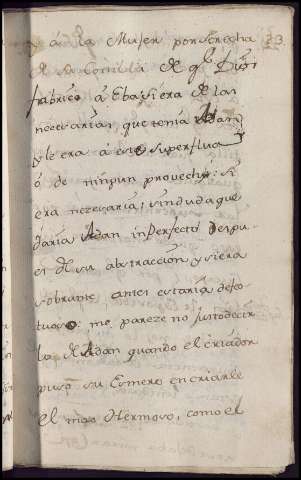 y á la Muger por ser echa 23
de su Costilla de qe Dios
fabricó á Eba si era de las
necesarias que tenia Adan
y le era á este superflua
ó de ningun provecho: si
era necesaria; sin duda que
daria Adan inperfecto despu
es de su abtraccion y si era
sobrante, antes estaria defec
tuoso. mo pareze no justo decir
la de Adan quando el criador
puso su Esmero en criarle
el mas Hermoso, como el